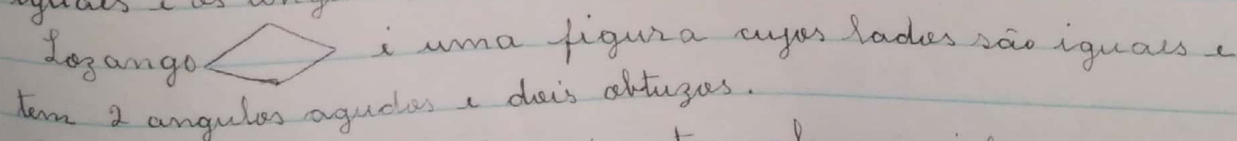 iguais e os
Lozango é uma figura cujos lados são iguais e
tem 2 angulos agudos e dois obtuzos.